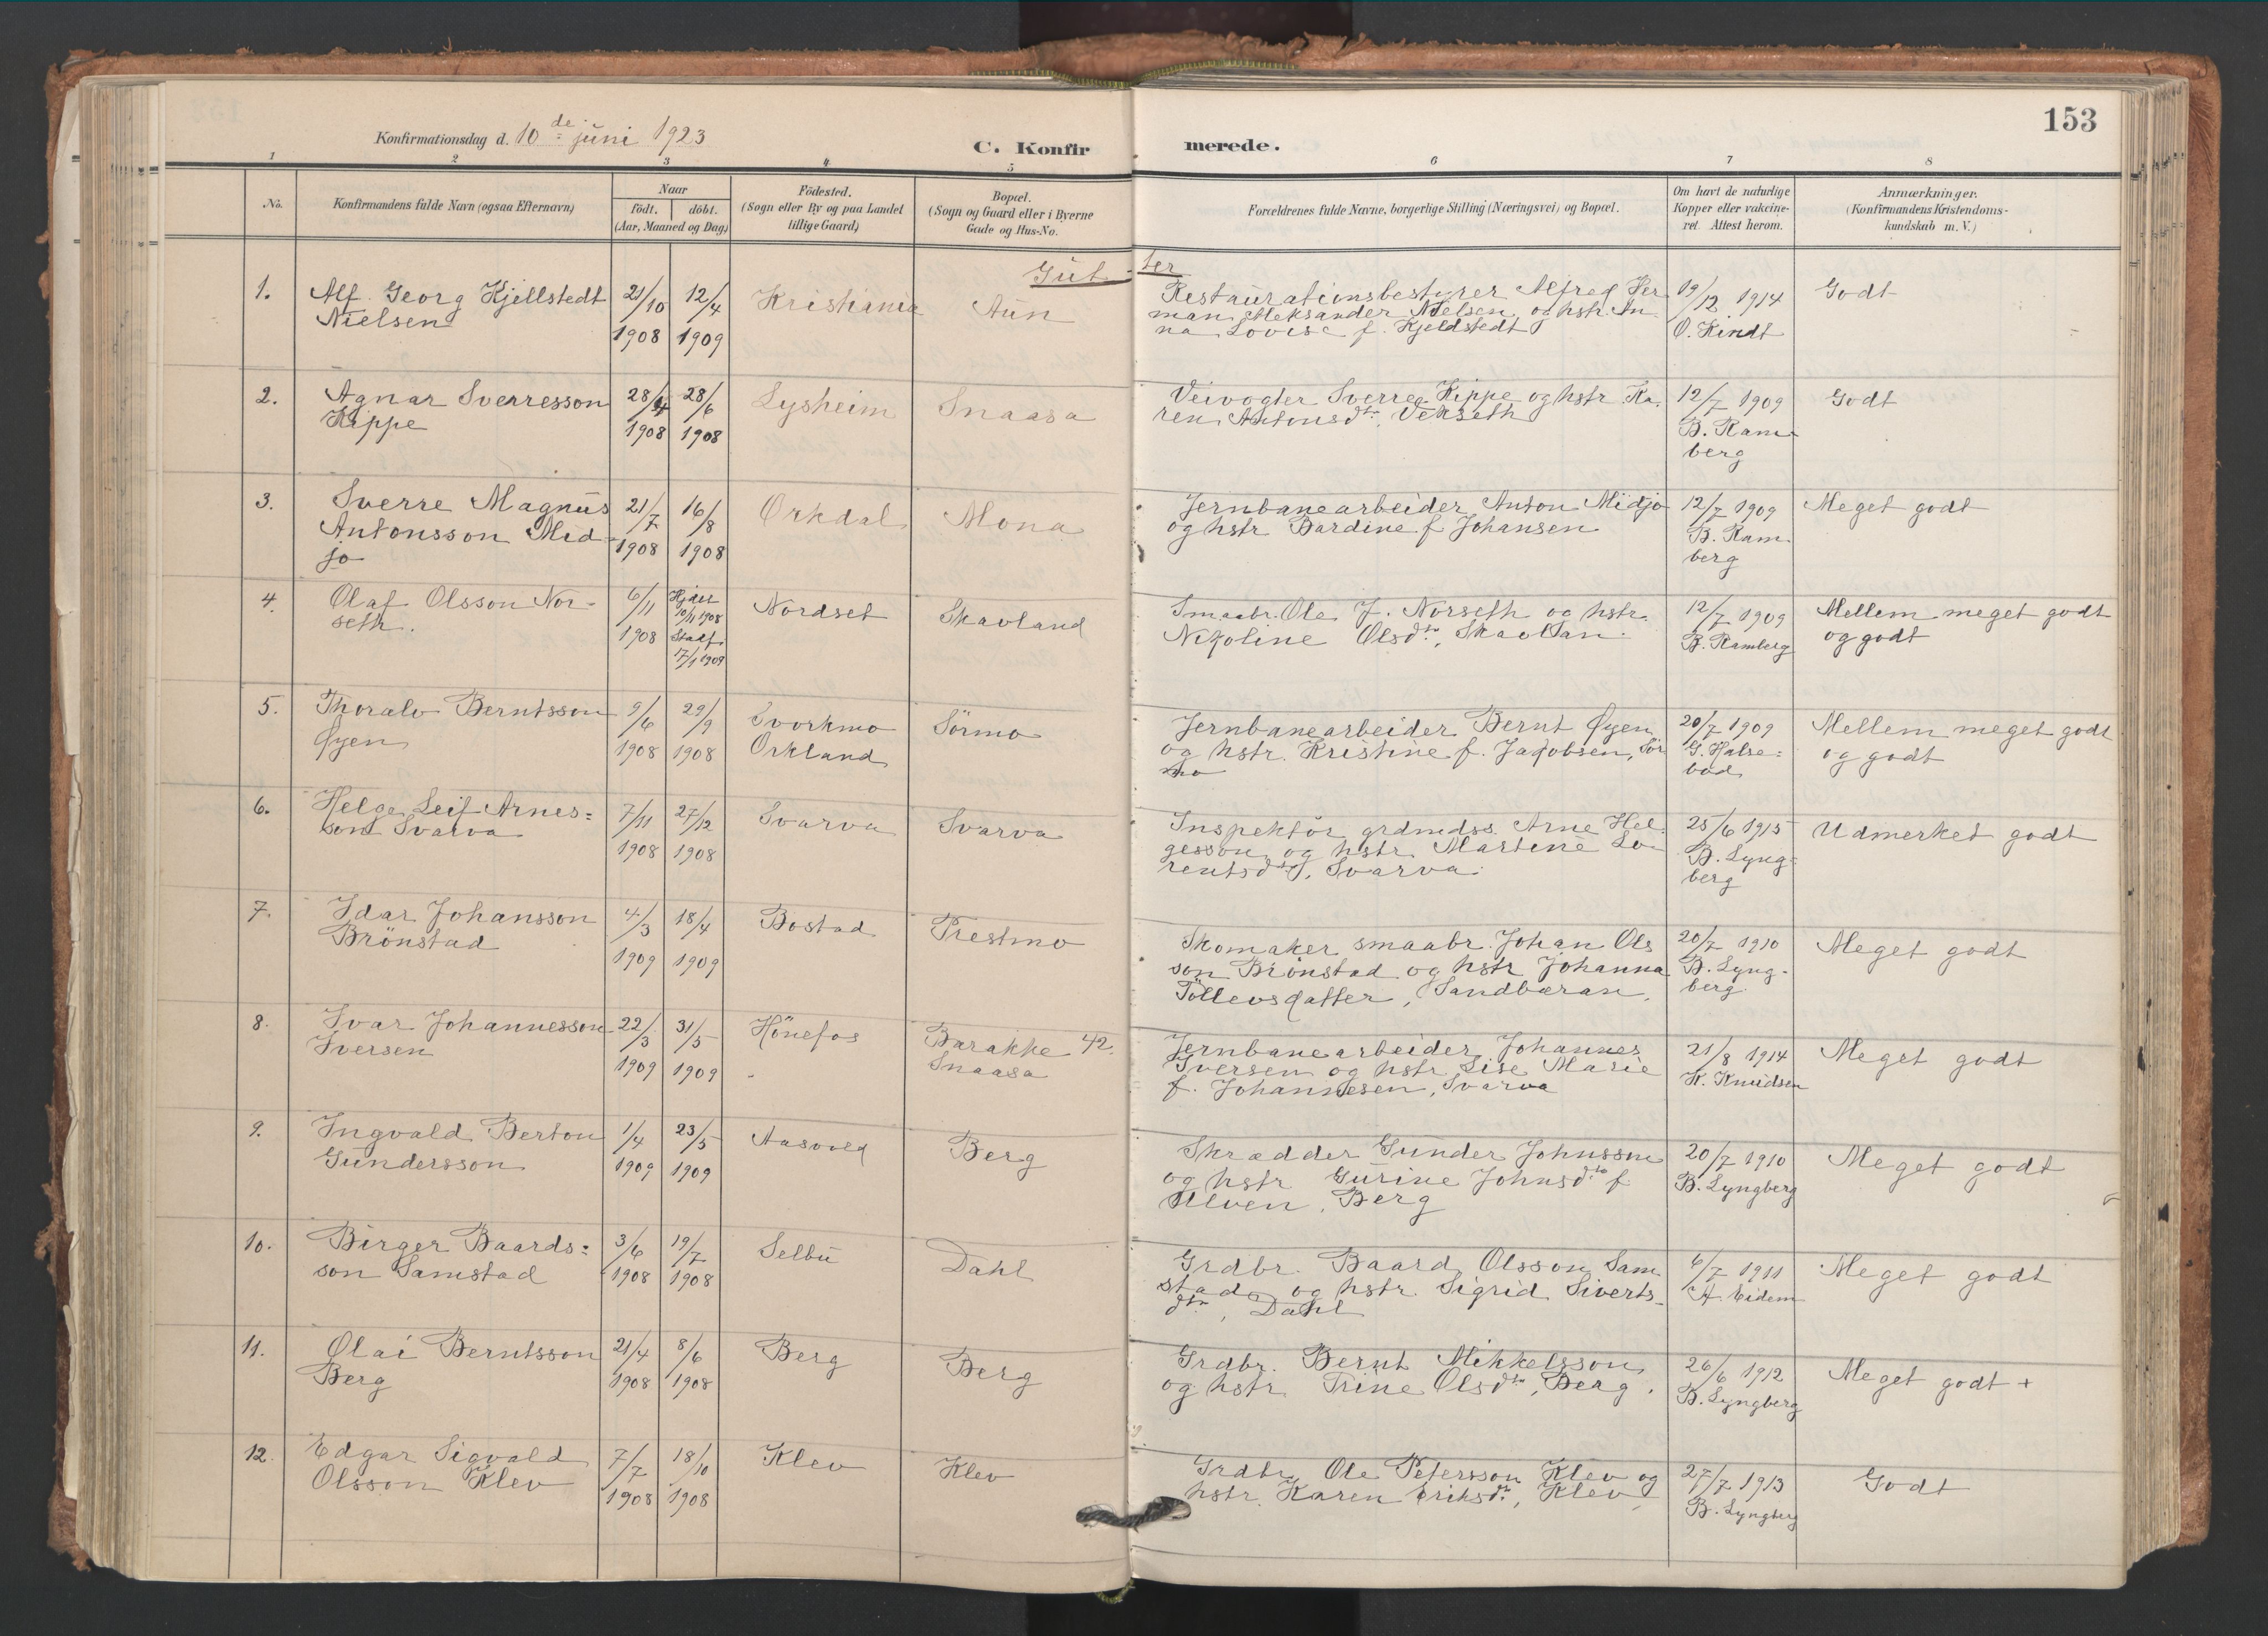 153
Konfirmationsdag d. 10de juni 1923
C. Konfirmerede.
1 2 3 4 5 6 7 8
No.
Konfirmandens fulde Navn (ogsaa Efternavn)
Naar
født. døbt.
(Aar, Maaned og Dag)
Födested.
(Sogn eller By og paa Landet
tillige Gaard)
Bopæl.
(Sogn og Gaard eller i Byerne
Gade og Hus-No.
Forældrenes fulde Navne, borgerlige Stilling (Næringsvei) og Bopæl.
Om havt de naturlige
Kopper eller vakcine-
ret. Attest herom.
Anmærkninger.
(Konfirmandens Kristendoms-
kundskab m. V.)
Gut-ter
1.
Alf Georg Kjellstedt
Nielsen
21/10
1908
12/4
1909
Kristiania
Aun
Restaurationsbestyrer Alfred Her
man Aleksander Nielsen og hstr. An
na Lovise f. Kjeldstedt
19/12 1914
O. Kindt
Godt
2.
Agnar Sverresson
Kippe
28/4
1908
28/6
1908
Lysheim
Snaasa
Veivogter Sverre Kippe og hstr. Ka
ren Antonsdtr. Vekseth
12/7 1909
B. Ram-
berg
Godt
3.
Sverre Magnus
Antonsson Mid-
jo
21/7
1908
16/8
1908
Orkdal
Mona
Jernbanearbeider Anton Midjo
og hstr Bardine f. Johansen
12/7 1909
B. Ram-
berg
Meget godt
4.
Olaf Olsson Nor-
seth.
6/11
1908
Hjdøt
10/11 1908
Stadf.
17/1 1909
Nordset
Skavland
Smaabr. Ole J. Norseth og hstr.
Nikoline Olsdtr, Skavlan.
12/7 1909
B. Ramberg
Mellem meget godt
og godt
5.
Thoralv Berntsson
Øyen
9/6
1908
29/9
1908
Svorkmo
Orkland
Sörmo
Jernbanearbeider Bernt Øyen
og hstr. Kristine f. Jakobsen, Sör
mo
20/7 1909
G. Halse-
bod
Mellem meget godt
og godt
6.
Helge Leif Arnes=
son Svarva
7/11
1908
27/12
1908
Svarva
Svarva
Inspektör grdmdss. Arne Hel-
gesson og hstr. Martine Lo-
rentsdtr, Svarva.
25/6 1915
B. Lyng-
berg
Udmerket godt
7.
Idar Johansson
Brönstad
4/3
1909
18/4
1909
Bostad
Prestmo
Skomaker smaabr. Johan Ols
son Brönstad og hstr Johanna
Tollevsdatter, Sandbæran.
20/7 1910
B. Lyng-
berg.
Meget godt
8.
Ivar Johannesson
Iversen
22/3
1909
31/5
1909
Hönefos
Barakke 42.
Snaasa
Jernbanearbeider Johannes
Iversen og hstr Lise Marie
f. Johannesen, Svarva
21/8 1914
K. Knudsen
Meget godt
9.
Ingvald Berton
Gundersson
1/4
1909
23/5
1909
Aasvold
Berg
Skrædder Gunder Johnsson
og hstr Gurine Johnsdtr f.
Ulven, Berg
20/7 1910
B. Lyngberg
Meget godt
10.
Birger Baards=
son Samstad
3/6
1908
19/7
1908
Selbu
Dahl
Grdbr. Baard Olsson Sam
stad og hstr. Sigrid Siverts-
dtr, Dahl
6/7 1911
A. Eidem
Meget godt
11.
Olai Berntsson
Berg
21/4
1908
8/6
1908
Berg
Berg
Grdbr. Bernt Mikkelsson
og hstr. Trine Olsdtr, Berg.
26/6 1912
B. Lyngberg
Meget godt +
12.
Edgar Sigvald
Olsson Klev
7/7
1908
18/10
1908
Klev
Klev
Grdbr. Ole Petersson Klev og
hstr. Karen Eriksdtr, Klev
27/7 1913
B. Lyngberg
Godt